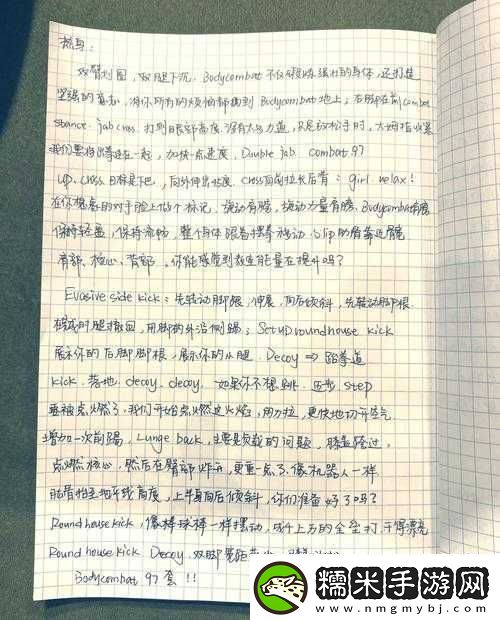 热身：
双臂划圈，双腿下沉. Bodycombat 不仅锻炼强壮的身体，还打造
坚强的意志，将你所有的烦恼都 Bodycombat 地上；右脚在前 combat
stance. jab cross. 打到眼部高度. 没有太多力道，只是放松手时，大拇指收紧
我们要将出拳连在一起，加快一点速度，Double jab. combat 97
up. cross 目标是下巴，向外伸出 cross 向前拉长后背；girl. relax！
在你想念的对手脸上做个标记，旋动有髋，旋动力量有髋. Bodycombat
保持轻盈，保持流畅，整个身体跟着摆拳移动. slip 的肩靠近髋
肩部、核心、背部，你能感觉到能量在提升吗？
Evasive side kick：先转动脚跟，伸展，向后倾斜，先转动脚根
腿撤回，用脚的外沿侧踢；Set up roundhouse kick
展示你的后脚脚根，展示你的小腿. Decoy ⇒ 跆拳道
kick. 落地. decoy. decoy. 如果你不想跳. 迈步. step
被点燃了，我们开始点燃这火焰，用力拉，更快地切开空气.
增加一次前踢，Lunge back，主要是负载的问题，膝盖
点燃核心，然后在臀部炸开，更重一点 3. 像机器人一样
抬至地平线高度，上半身向后倾斜，你们准备好了吗？
Roundhouse kick，像棒球棒一样摆动，成千上万的全垒打，干得漂亮
Roundhouse kick Decoy. 双脚宽距
Bodycombat 97 套！！
糯米手游网
www.nmgmybj.com